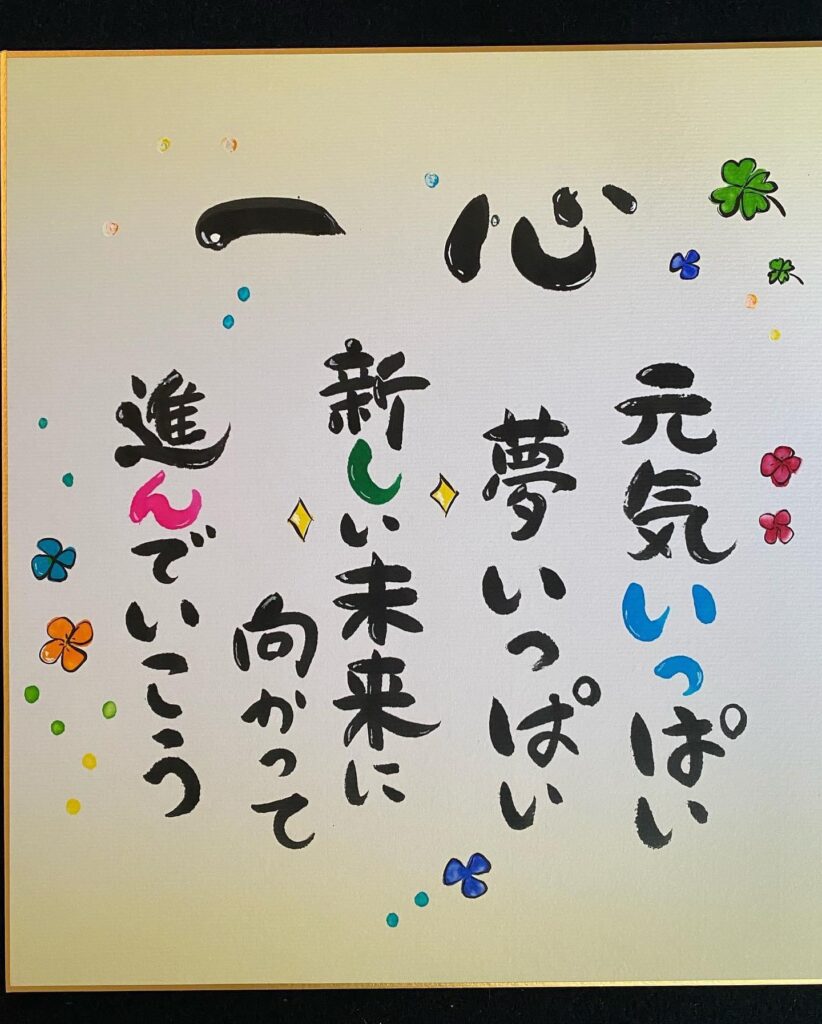 一心
元気いっぱい
夢いっぱい
新しい未来に
向かって
進んでいこう